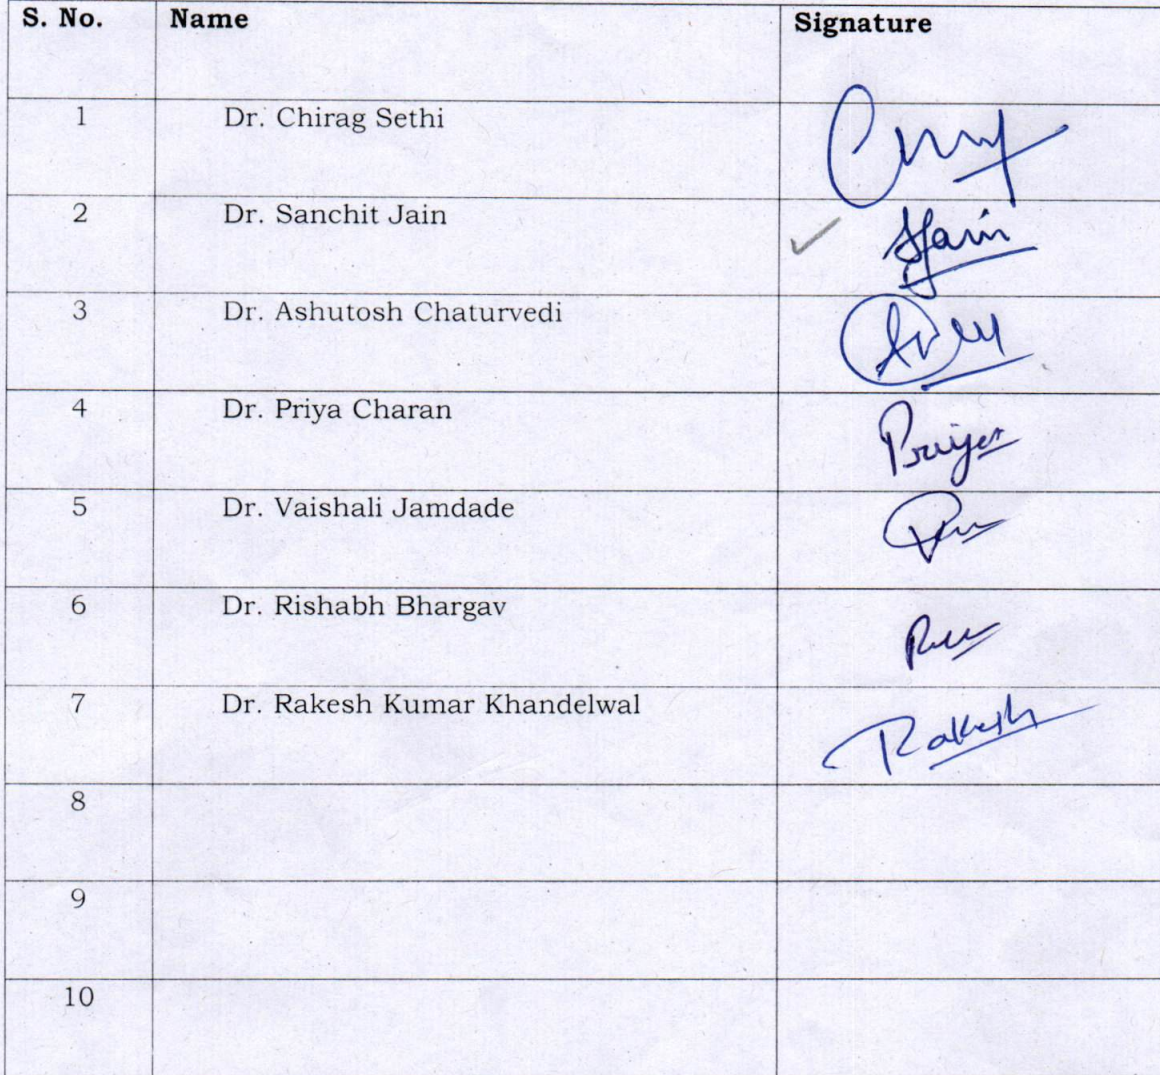 S. No. Name Signature
1 Dr. Chirag Sethi
2 Dr. Sanchit Jain Jain
3 Dr. Ashutosh Chaturvedi
4 Dr. Priya Charan Priya
5 Dr. Vaishali Jamdade
6 Dr. Rishabh Bhargav
7 Dr. Rakesh Kumar Khandelwal Rakesh
8
9
10